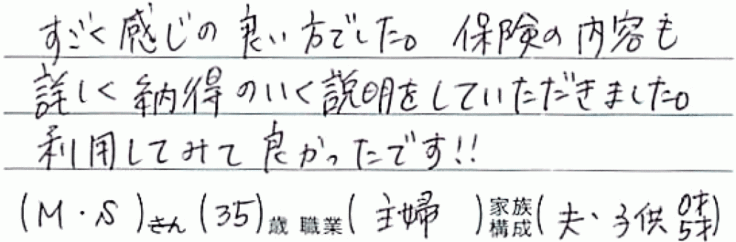 すごく感じの良い方でした。保険の内容も
詳しく納得のいく説明をしていただきました。
利用してみて良かったです!!
(M・S)さん(35)歳 職業(主婦)家族構成(夫、子供 0才 5才)